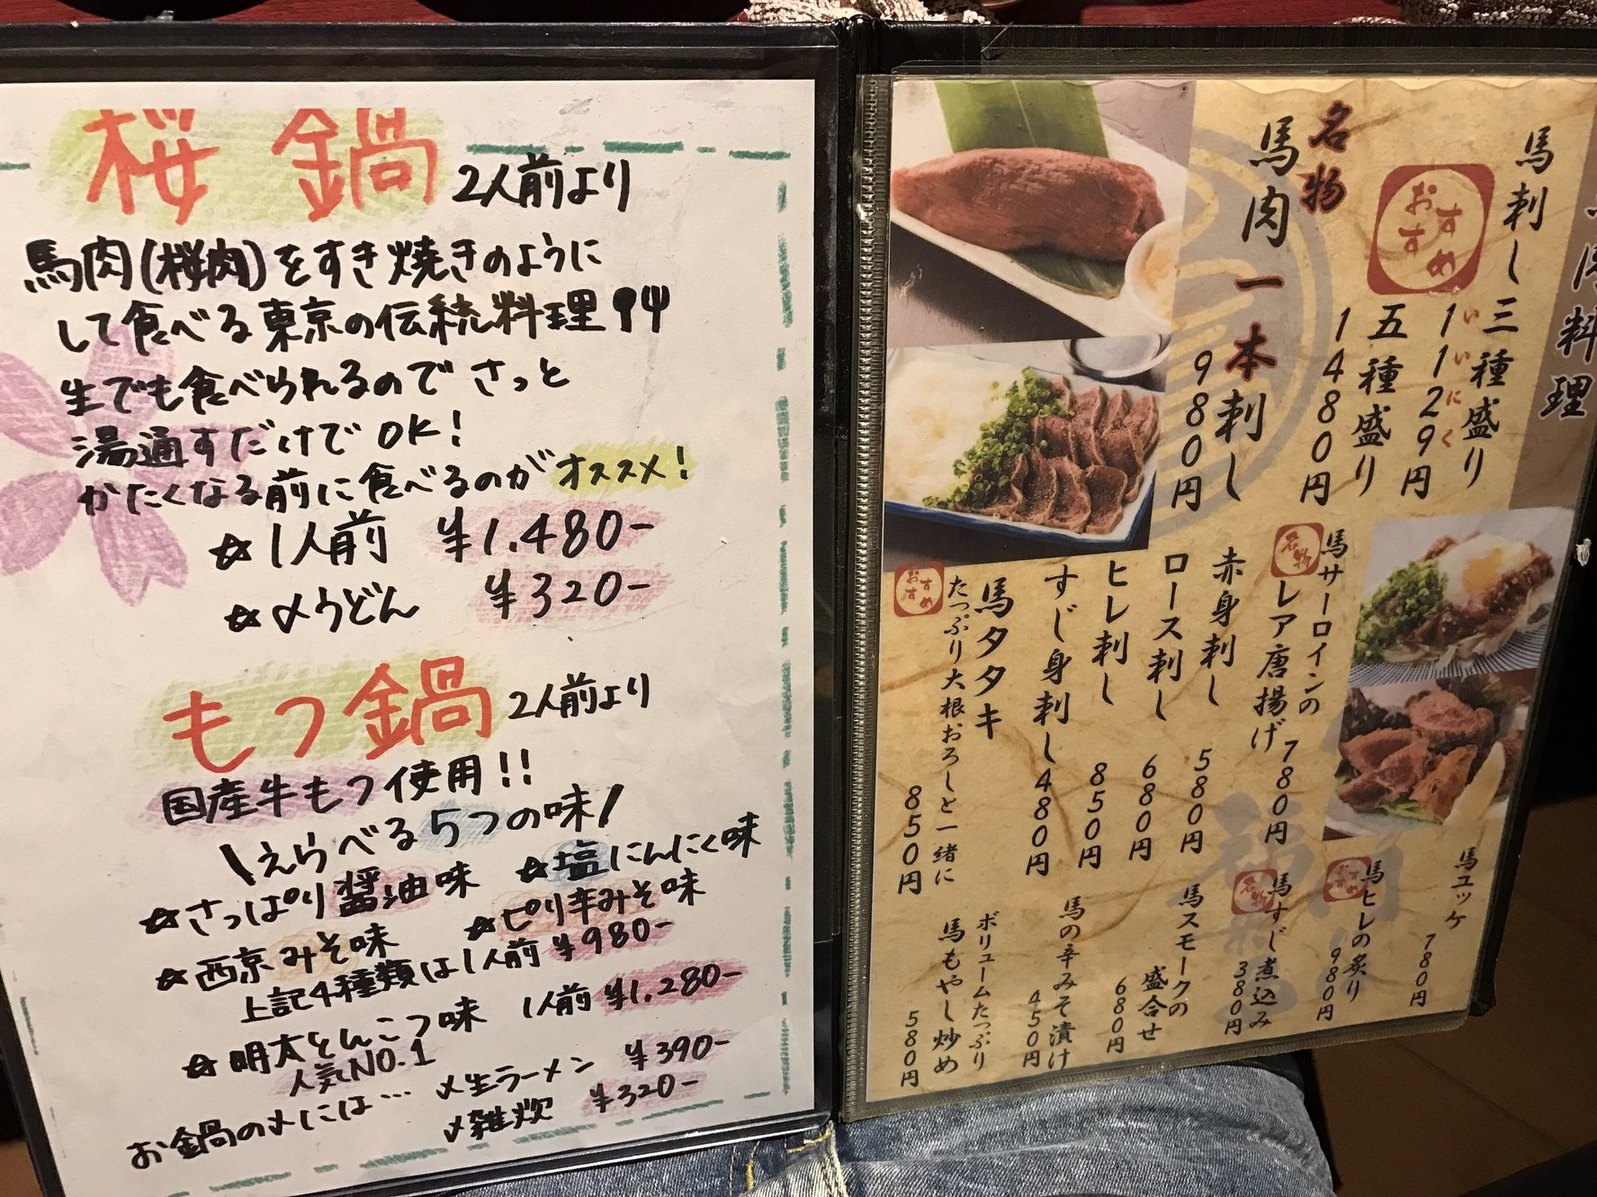 桜鍋 2人前より
馬肉(桜肉)をすき焼きのように
して食べる東京の伝統料理
生でも食べられるのでさっと
湯通すだけでOK!
かたくなる前に食べるのがオススメ!
☆1人前 ¥1.480-
☆〆うどん ¥320-
もつ鍋 2人前より
国産牛もつ使用!!
\えらべる5つの味/
☆さっぱり醤油味 ☆塩にんにく味
☆西京みそ味 ☆ピリ辛みそ味
上記4種類は1人前 ¥980-
☆明太とんこつ味 1人前 ¥1.280-
人気NO.1
お鍋の〆には… 〆生ラーメン ¥390-
〆雑炊 ¥320-
料理
馬刺し三種盛り
いいにく
1129円
おすすめ
五種盛り
1480円
名物
馬肉一本刺し
980円
馬サーロインの
名物
レア唐揚げ 780円
赤身刺し 580円
ロース刺し 680円
ヒレ刺し 850円
すじ身刺し 480円
馬タタキ
たっぷり大根おろしと一緒に
おすすめ
850円
馬ユッケ
780円
馬ヒレの炙り
おすすめ
980円
馬すじ煮込み
名物
380円
馬スモークの
盛合せ
680円
馬の辛みそ漬け
450円
ボリュームたっぷり
馬もやし炒め
580円